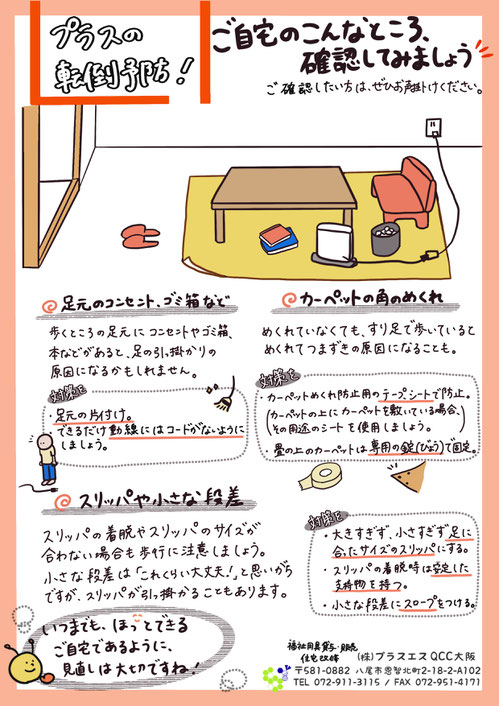 プラスの
転倒予防!
ご自宅のこんなところ、
確認してみましょう
ご確認したい方は、ぜひお声掛けください。
足元のコンセント、ゴミ箱など
歩くところの足元にコンセントやゴミ箱、
本などがあると、足の引っ掛かりの
原因になるかもしれません。
対策は
・足元の片付け。
・できるだけ動線にはコードがないように
しましょう。
カーペットの角のめくれ
めくれていなくても、すり足で歩いていると
めくれてつまずきの原因になることも。
対策は
・カーペットめくれ防止用のテープ、シートで防止。
(カーペットの上にカーペットを敷いている場合、
その用途のシートを使用しましょう。)
・畳の上のカーペットは専用の鋲(びょう)で固定。
スリッパや小さな段差
スリッパの着脱やスリッパのサイズが
合わない場合も歩行に注意しましょう。
小さな段差は「これくらい大丈夫!」と思いがち
ですが、スリッパが引っ掛かることもあります。
対策は
・大きすぎず、小さすぎず足に
合ったサイズのスリッパにする。
・スリッパの着脱時は安定した
支持物を持つ。
・小さな段差にスロープをつける。
いつまでも、ほっとできる
ご自宅であるように、
見直しは大切ですね!
福祉用具貸与・販売
住宅改修
(株)プラスエスQCC大阪
〒581-0882 八尾市恩智北町2-18-2-A102
TEL 072-911-3115 / FAX 072-951-4171